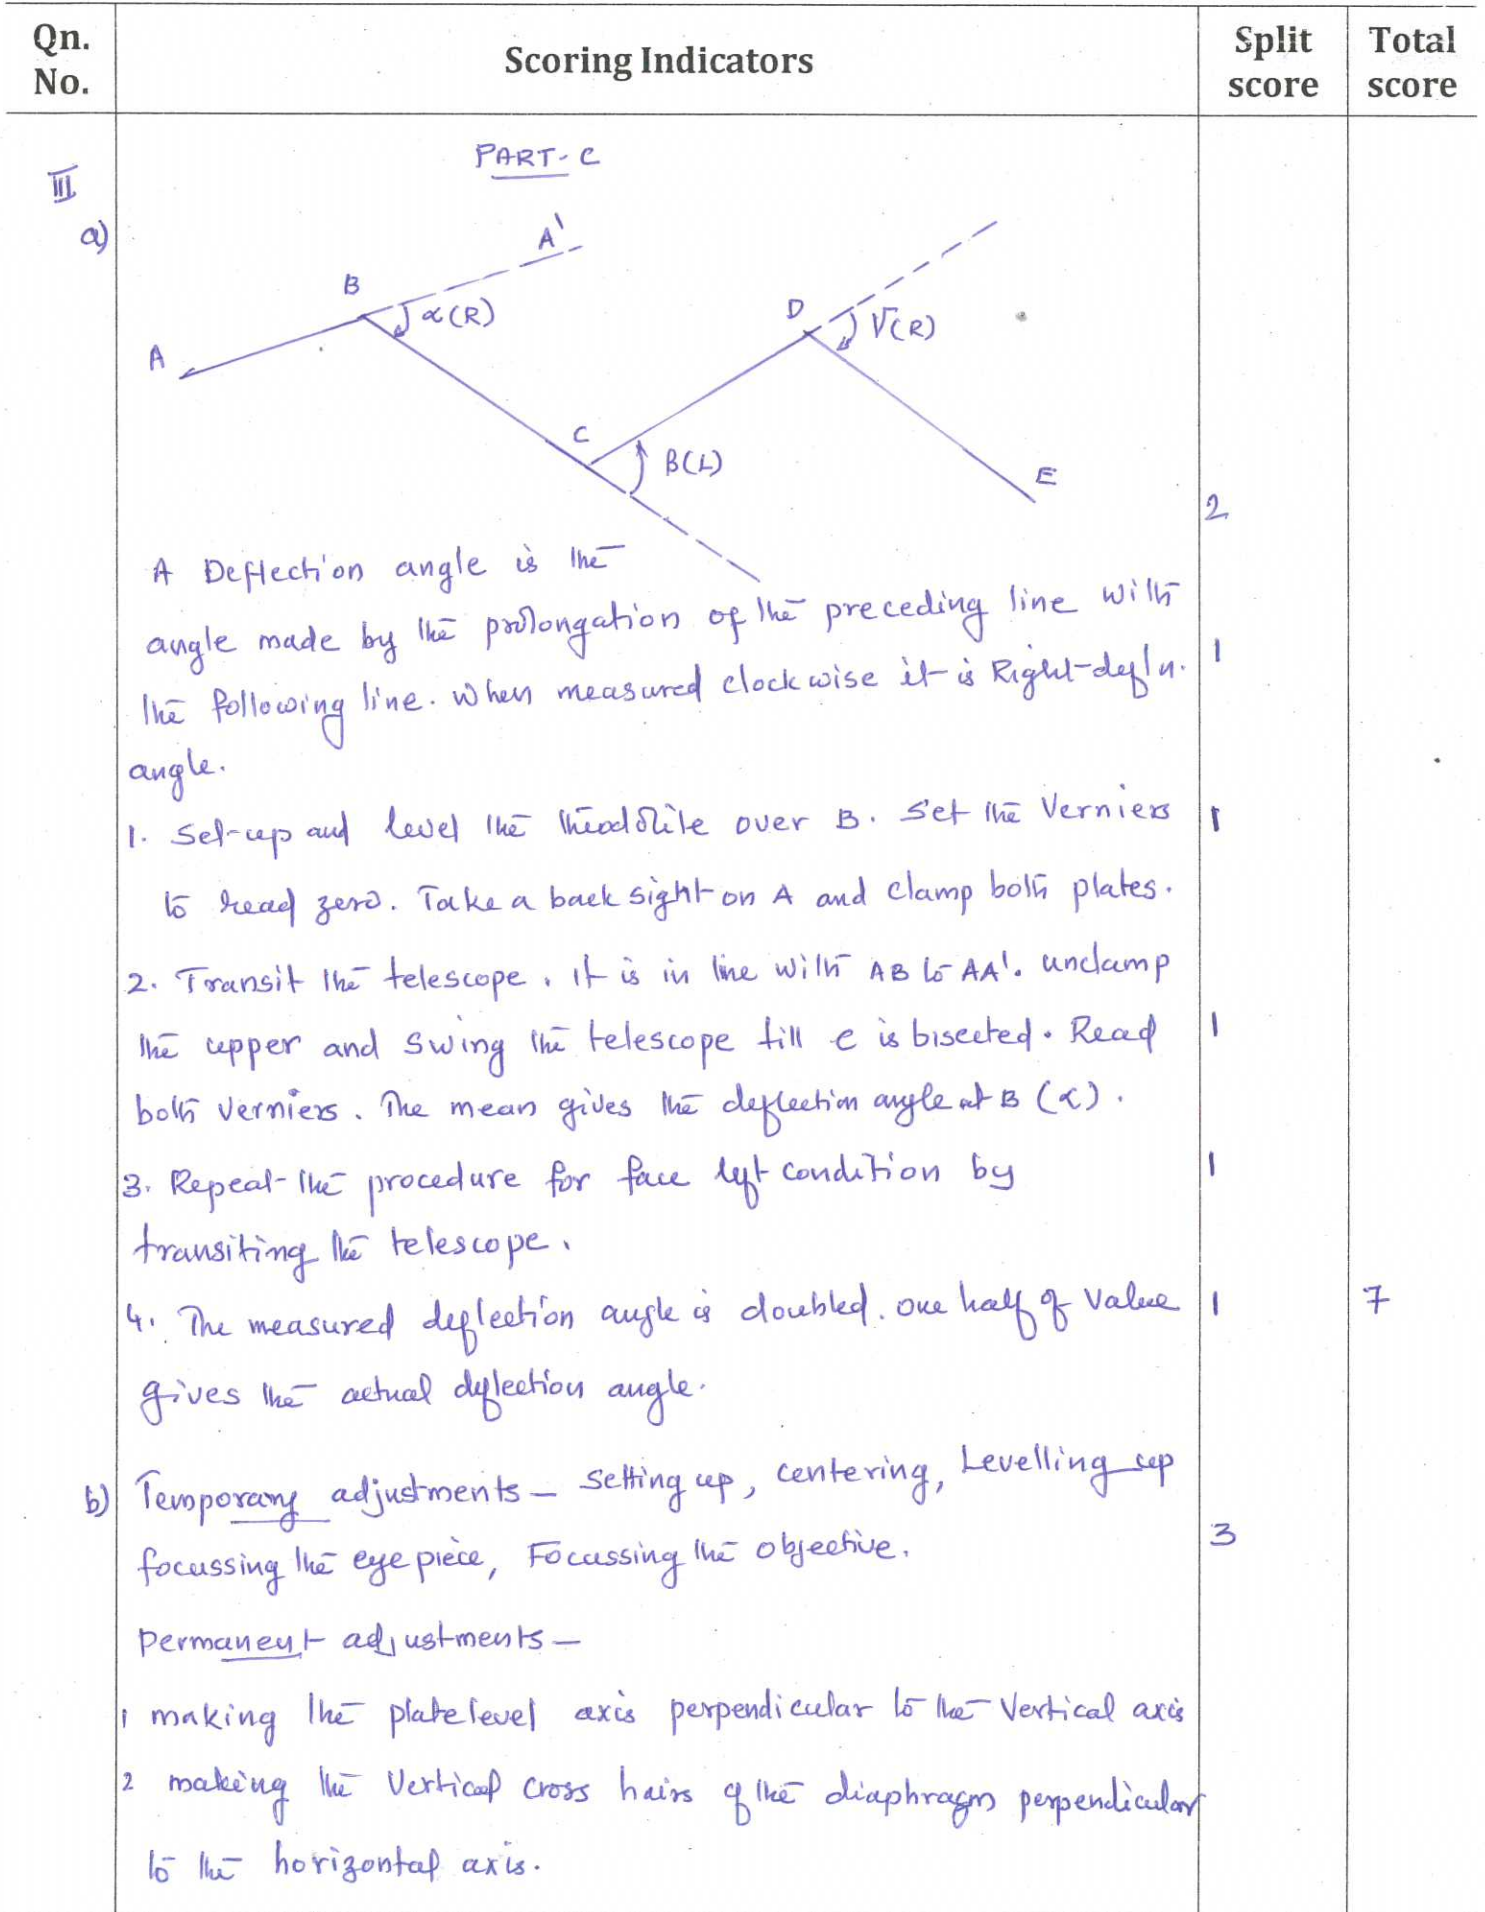 Qn. No.
Scoring Indicators
Split score
Total score
PART-C
III
a)
A'
B
α(R)
A
D
γ(R)
C
β(L)
E
2
A Deflection angle is the
angle made by the prolongation of the preceding line with
1
the following line. When measured clockwise it is Right-defln.
angle.
1. Set-up and level the theodolite over B. Set the Verniers
1
to read zero. Take a back sight on A and clamp both plates.
2. Transit the telescope. It is in line with AB to AA'. unclamp
the upper and swing the telescope till C is bisected. Read
1
both verniers. The mean gives the deflection angle at B (α).
3. Repeat the procedure for face left condition by
1
transiting the telescope.
4. The measured deflection angle is doubled. one half of value
1
7
gives the actual deflection angle.
b) Temporary adjustments – Setting up, centering, Levelling up
focussing the eye piece, Focussing the objective.
3
Permanent adjustments –
1 making the plate level axis perpendicular to the Vertical axis
2 making the Vertical cross hairs of the diaphragm perpendicular
to the horizontal axis.